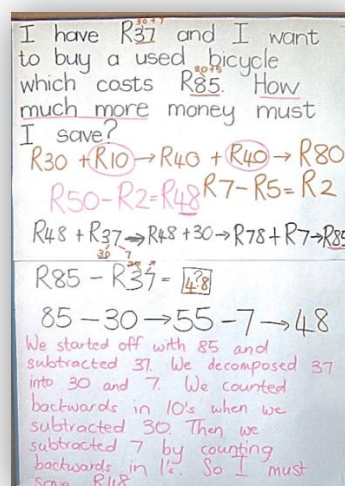 30+7
I have R37 and I want
to buy a used bicycle
80+5
which costs R85. How
much more money must
I save?
R30 + R10 → R40 + R40 → R80
R50 - R2 = R48 R7 - R5 = R2
R48 + R37 → R48 + 30 → R78 + R7 → R85
30 7
R85 - R37 = 48
85 - 30 → 55 - 7 → 48
We started off with 85 and
subtracted 37. We decomposed 37
into 30 and 7. We counted
backwards in 10's when we
subtracted 30. Then we
subtracted 7 by counting
backwards in 1's. So I must
save R48